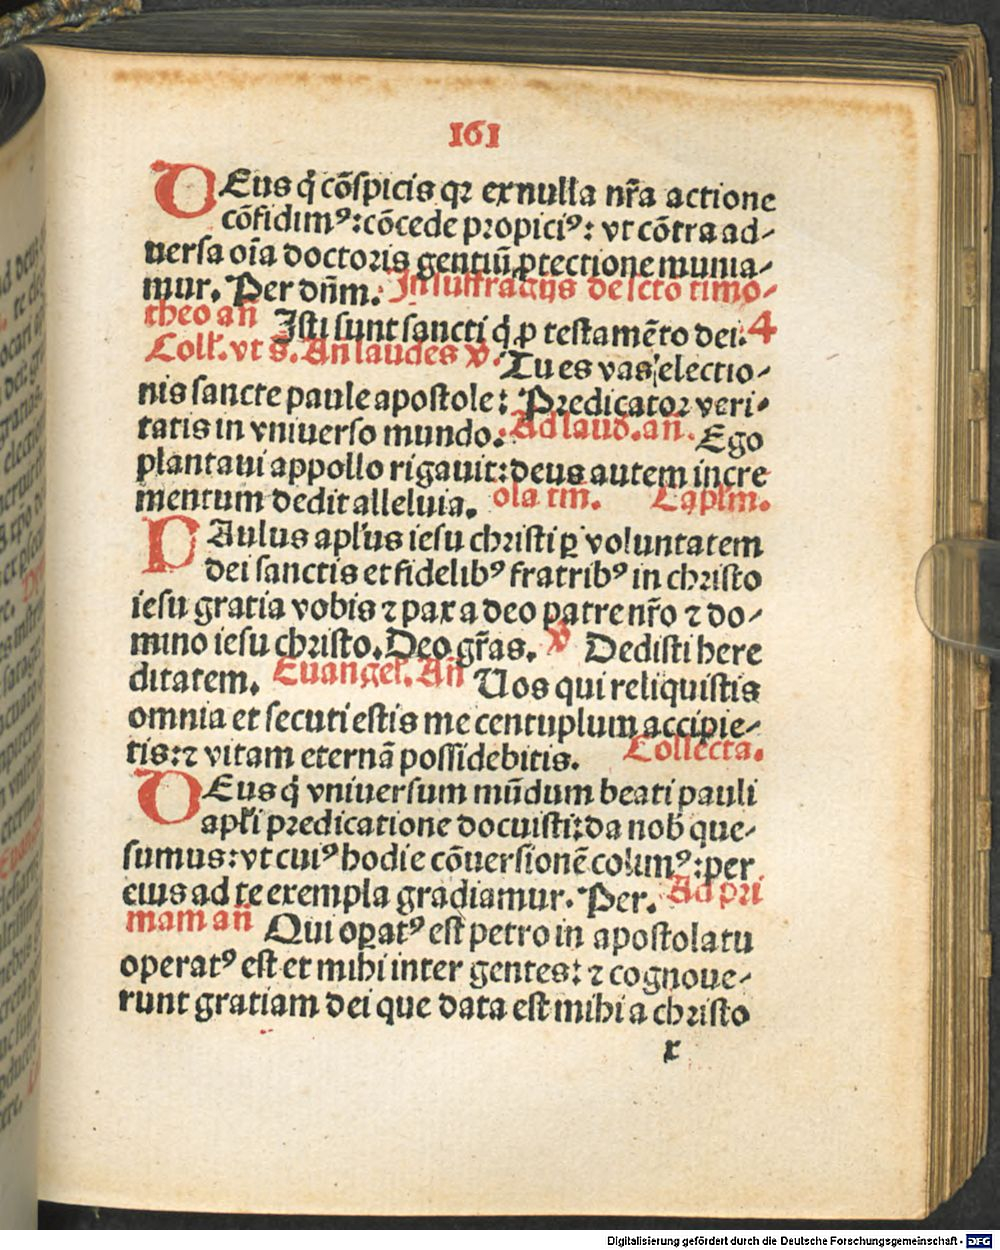 161
DEus q̃ cõspicis qꝛ exnulla nr̃a actione
cõfidimꝰ: cõcede propiciꝰ: vt cõtra ad-
uersa oĩa doctoris gentiũ ꝓtectione munia-
mur. Per dñm. In suffragijs de scto timo-
theo añ Isti sunt sancti q̃ ꝓ testamẽto dei. 4
Coll'. vt s̃. An laudes ꝟ. Tu es vas electio-
nis sancte paule apostole: Predicator veri-
tatis in vniuerso mundo. Ad laud. añ. Ego
plantaui appollo rigauit: deus autem incre
mentum dedit alleluia. ola tm̃. Capl'm.
PAulus apl'us iesu christi ꝑ voluntatem
dei sanctis et fidelibꝰ fratribꝰ in christo
iesu gratia vobis ⁊ pax a deo patre nr̃o ⁊ do-
mino iesu christo. Deo gr̃as. ꝟ Dedisti here
ditatem. Euangel'. Añ Uos qui reliquistis
omnia et secuti estis me centuplum accipie-
tis: ⁊ vitam eternã possidebitis. Collecta.
DEus q̃ vniuersum mũdum beati pauli
apl'i predicatione docuisti: da nob̃ que-
sumus: vt cuiꝰ hodie cõuersionẽ colimꝰ: per
eius ad te exempla gradiamur. Per. Ad pri
mam añ Qui oꝑatꝰ est petro in apostolatu
operatꝰ est et mihi inter gentes: ⁊ cognoue-
runt gratiam dei que data est mihi a christo
x
Digitalisierung gefördert durch die Deutsche Forschungsgemeinschaft - DFG